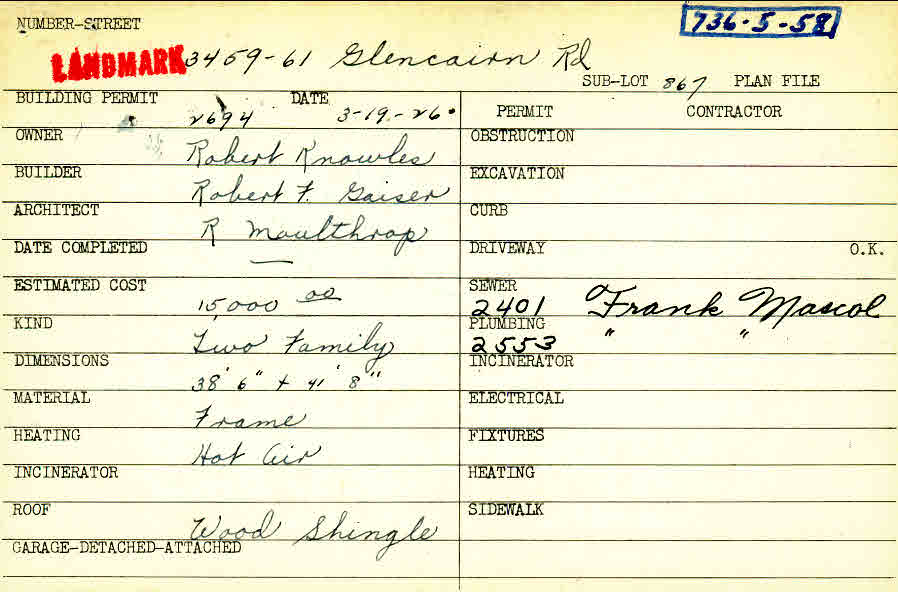 NUMBER-STREET 736-5-58
LANDMARK 3459-61 Glencairn Rd
SUB-LOT 867 PLAN FILE
BUILDING PERMIT 2694 DATE 3-19-26
PERMIT CONTRACTOR
OWNER Robert Knowles
OBSTRUCTION
BUILDER Robert F. Gaiser
EXCAVATION
ARCHITECT R Moulthrop
CURB
DATE COMPLETED —
DRIVEWAY O.K.
ESTIMATED COST 15,000 00
SEWER 2401 Frank Mascol
KIND Two Family
PLUMBING 2553 " "
DIMENSIONS 38' 6" + 41' 8"
INCINERATOR
MATERIAL Frame
ELECTRICAL
HEATING Hot Air
FIXTURES
INCINERATOR
HEATING
ROOF Wood Shingle
SIDEWALK
GARAGE-DETACHED-ATTACHED